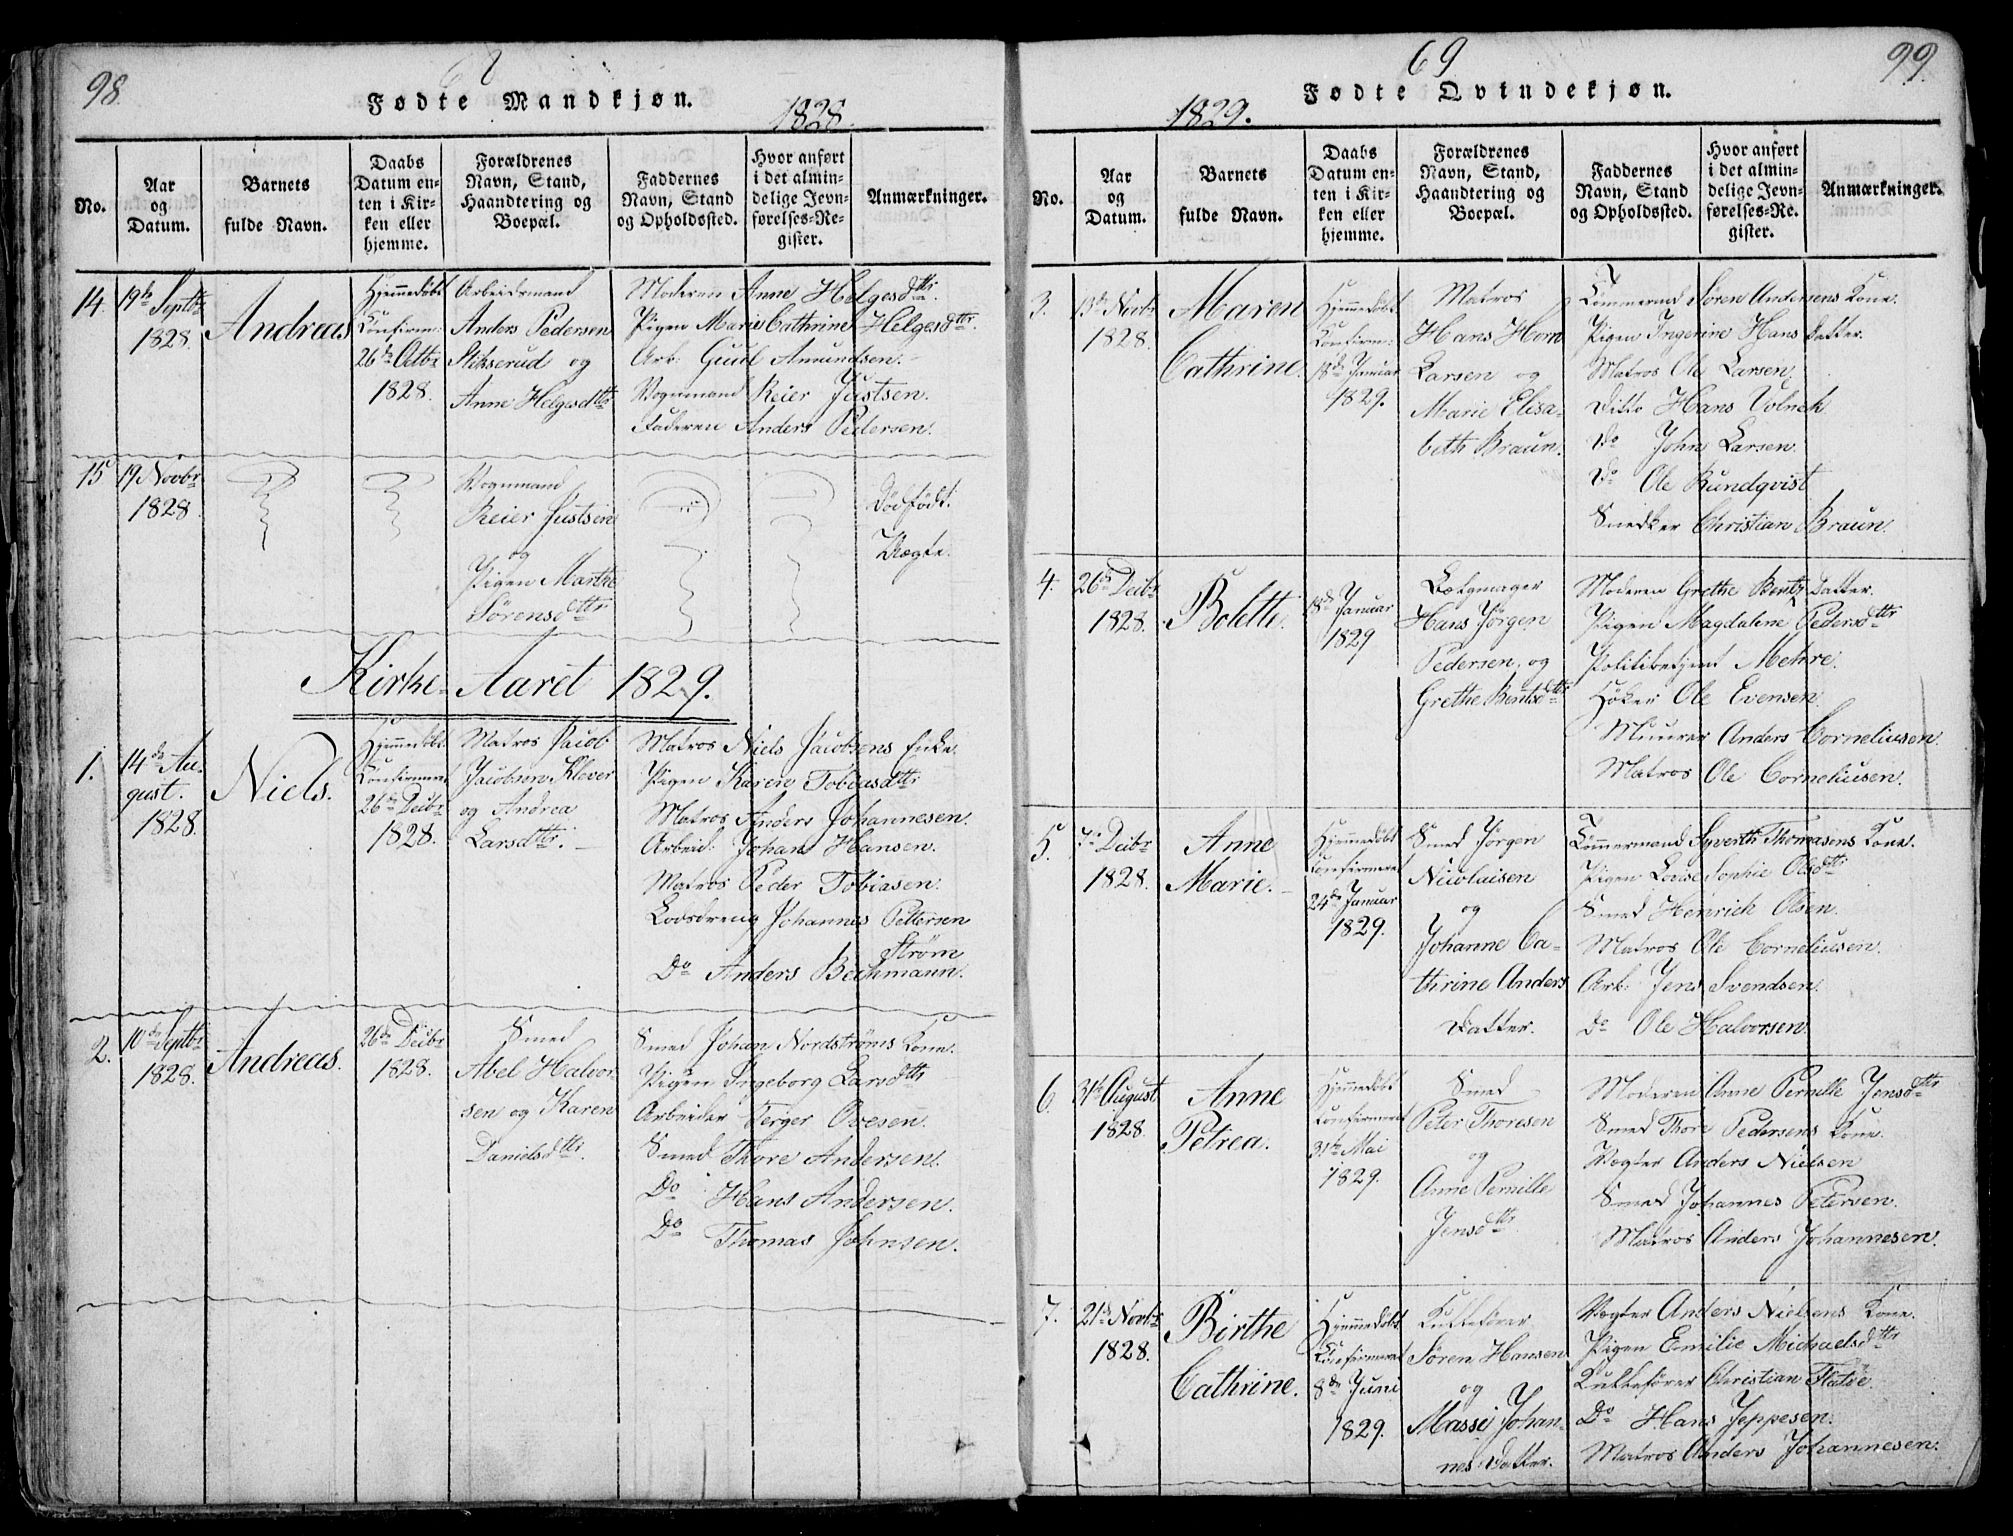 98
Fødte Mandkjøn.
1828
No.
Aar og Datum.
Barnets fulde Navn.
Daabs Datum enten i Kirken eller hjemme.
Forældrenes Navn, Stand, Haandtering og Boepæl.
Faddernes Navn, Stand og Opholdssted.
Hvor anført i det almindelige Jevnførelses-Register.
Anmærkninger.
14.
19de Septbr
1828.
Andreas
Hjemmedøbt
Confirm:
26de Octbr
1828.
Arbeidsmand
Anders Pedersen
Stikserud og
Anne Helgesdttr
Moderen Anne Helgesdttr.
Pigen Marie Cathrine Helgesdttr.
Arb: Gudl Amundsen.
Vognmand Reier Justsen.
Faderen Anders Pedersen.
15
19 Novbr
1828.
Vognmand
Reier Justsen
og
Pigen Marthe
Sørensdttr
Dødfødt.
Uægte.
Kirke-Aaret 1829.
1.
14de August.
1828.
Niels.
Hjemmedøbt
Confirmeret
26de Decbr
1828.
Matros Jacob
Jacobsen Klever
og Andrea
Larsdttr.
Matros Niels Jacobsens Enke.
Pigen Karen Tobiasdttr
Matros Anders Johannesen.
Arbeid: Johan Hansen.
Matros Peder Tobiasen.
Lodsdreng Johannes Pettersen
Strøm
Do Anders Bechmann.
2.
10de Septbr
1828.
Andreas.
26de Decbr
1828.
Smed
Abel Halvorsen
og Karen
Danielsdttr.
Smed Johan Nordstrøms Kone.
Pigen Ingeborg Larsdttr
Arbeider Terger Ovesen.
Smed Thore Andersen.
Do Hans Andersen.
Do Thomas Johnsen.
69
99.
Fødte Qvindekjøn.
1829.
No.
Aar og Datum.
Barnets fulde Navn.
Daabs Datum enten i Kirken eller hjemme.
Forældrenes Navn, Stand, Haandtering og Boepæl.
Faddernes Navn, Stand og Opholdssted.
Hvor anført i det almindelige Jevnførelses-Register.
Anmærkninger.
3.
13de Novbr
1828.
Maren
Cathrine.
Hjemmedøbt
Confirm:
18de Januar
1829.
Matros
Hans Horn
Larsen og
Marie Elisabeth
Braun.
Tømmermd Søren Andersens Kone.
Pigen Ingerine Hans Datter.
Matros Ole Larsen.
Ditto Hans Volnek
Do John Larsen.
Do Ole Rundqvist
Snedker Christian Braun.
4.
26de Decbr
1828.
Bolette.
18de Januar
1829
Hans Jørgen
Pedersen. og
Grethe Bentsdttr
Moderen Grethe Bents Datter.
Pigen Magdalene Pedersdttr
Politibetjent Mehre.
Høker Ole Evensen.
Muurer Anders Corneliusen.
Matros Ole Corneliusen.
5.
7de Decbr
1828.
Anne
Marie.
Hjemmedøbt
Confirmeret
24de Januar
1829.
Smed Jørgen
Nicolaisen
og
Johanne Cathrine
Anders
Datter.
Tømmermand Syverth Thomasens Kone.
Pigen Lovise Sophie Olsdttr
Smed Henrich Olsen.
Matros Ole Corneliusen.
Arb: Jens Svendsen.
Do Ole Halvorsen
6.
31te August
1828.
Anne
Petrea.
Hjemmedøbt
Confirmeret
31te Mai
1829.
Smed
Peter Thoresen
og
Anne Pernille
Jensdttr.
Moderen Anne Pernille Jensdttr
Smed Thore Pedersens Kone.
Vægter Anders Nielsen
Smed Johannes Petersen.
Matros Anders Johannesen.
7.
21de Novbr
1828.
Birthe
Cathrine.
Hjemmedøbt
Confirmeret
8de Juni
1829.
Kulkefører
Søren Hansen
og
Massi Johannes
Datter.
Vægter Anders Nielsens Kone.
Pigen Emilie Michaelsdttr
Kulkefører Christian Flatøe.
Do Hans Jeppesen.
Matros Anders Johannesen.